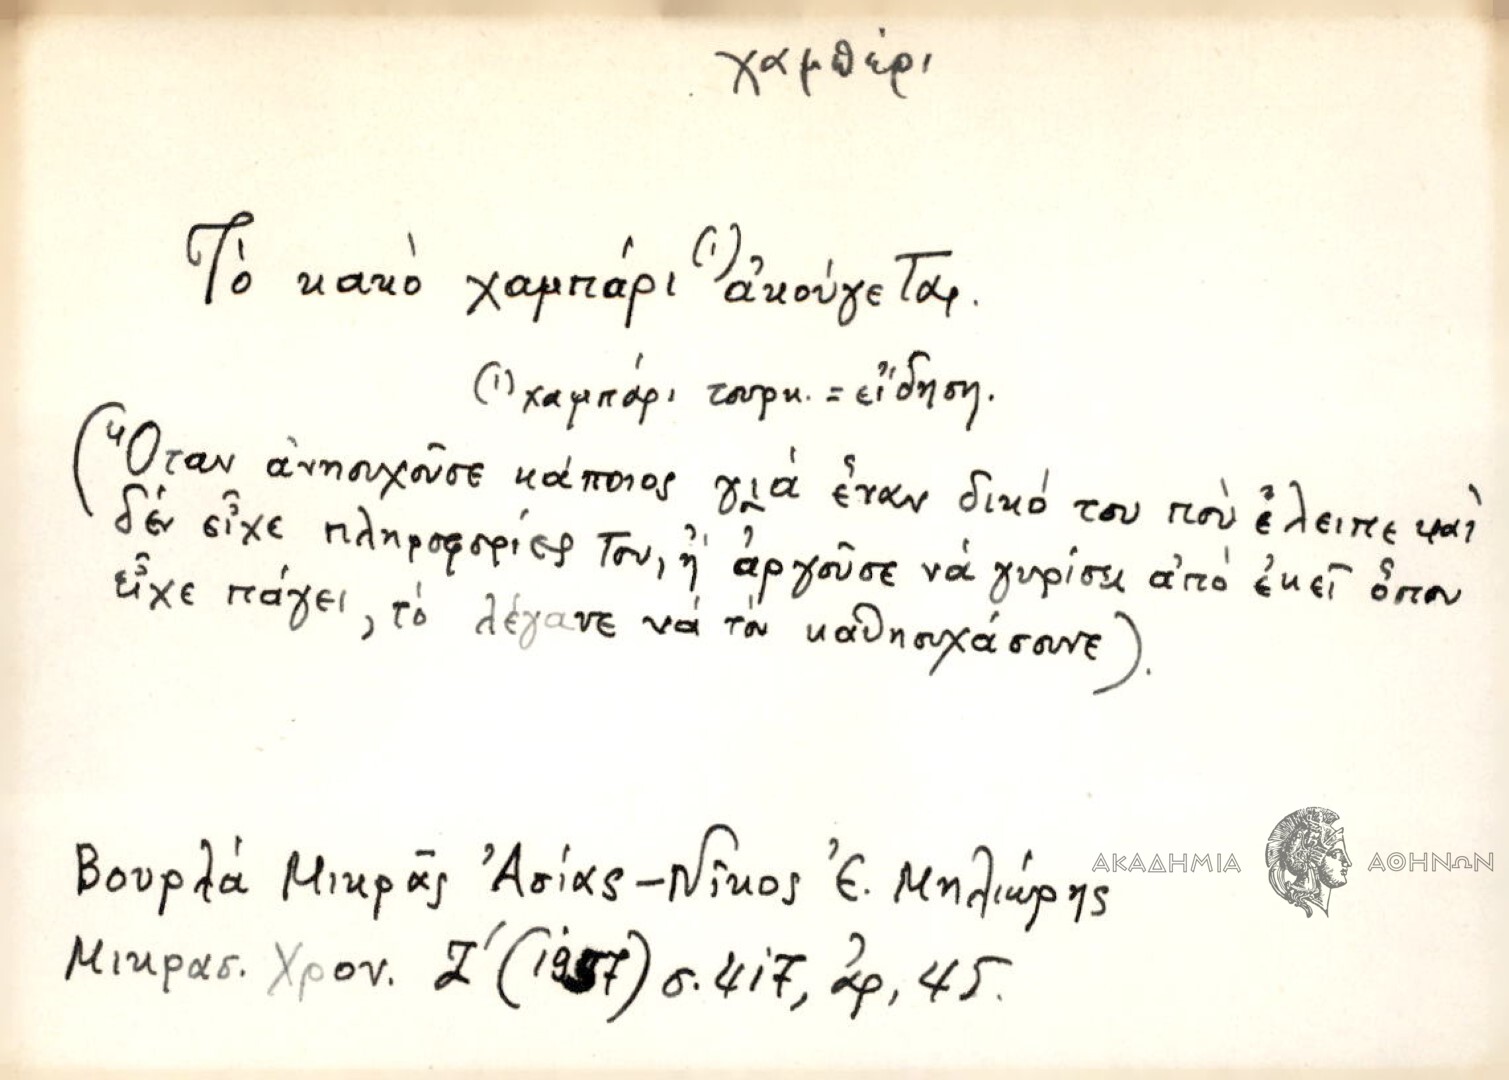 χαμπέρι
Τὸ κακὸ χαμπάρι (1) ἀκούγεται.
(1) χαμπάρι τουρκ. = εἴδηση.
(Ὅταν ἀνησυχοῦσε κάποιος γιὰ ἕναν δικό του ποὺ ἔλειπε καὶ
δὲν εἶχε πληροφορίες του, ἢ ἀργοῦσε νὰ γυρίσει ἀπὸ ἐκεῖ ὅπου
εἶχε πάγει, τὸ λέγανε νὰ τὸν καθησυχάσουνε).
Βουρλὰ Μικρᾶς Ἀσίας - Νῖκος Ἐ. Μηλιώρης
Μικρασ. Χρον. Ζ΄ (1957) σ. 417, ἀρ. 45.
ΑΚΑΔΗΜΙΑ ΑΘΗΝΩΝ